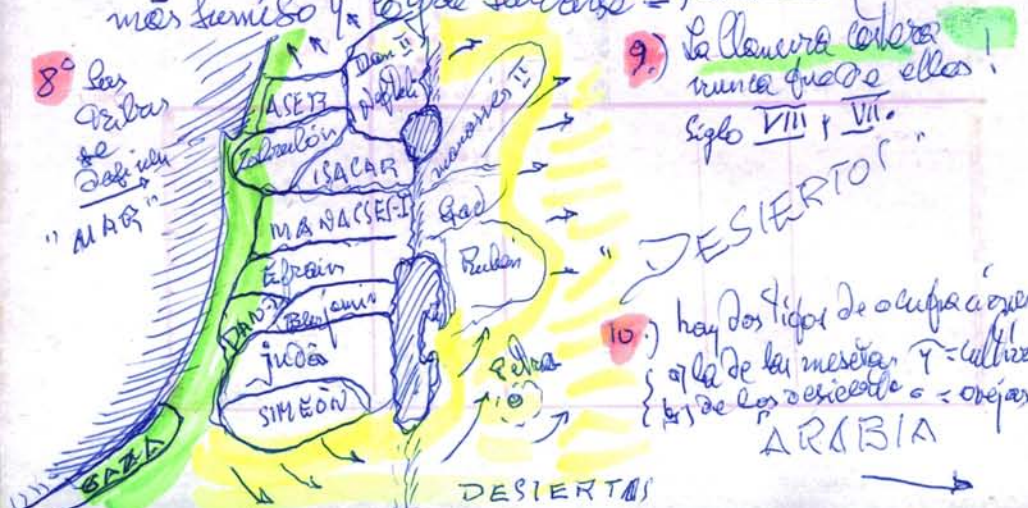 más sumiso y
8º Las
tribus
se
"MAR"
ASER
Dan II
Neftalí
Zabulón
ISACAR
manassés II
MANACSES-I
Gad
Efraín
Rubén
DAN-I
Benjamin
judá
SIMEÓN
GAZA
Petra
DESIERTAS
9.) La llanura costera
nunca quede ellos!
siglo VIII y VII.
"DESIERTO"
10.) hay dos tipos de ocupaciones
a) la de las mesetas y = cultivo
b) de los desiertos = ovejas
ARABIA